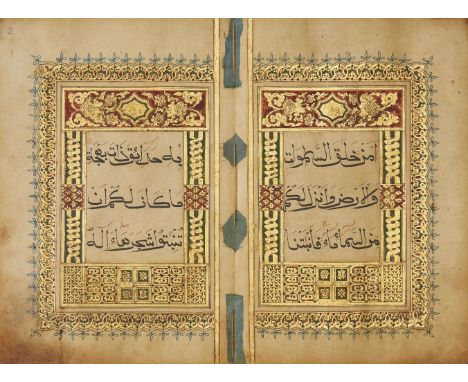 2
امن خلق السموات
والارض وانزل لكم
من السماء ماء فانبتنا
به حدائق ذات بهجة
ما كان لكم ان
تنبتوا شجرها ءاله